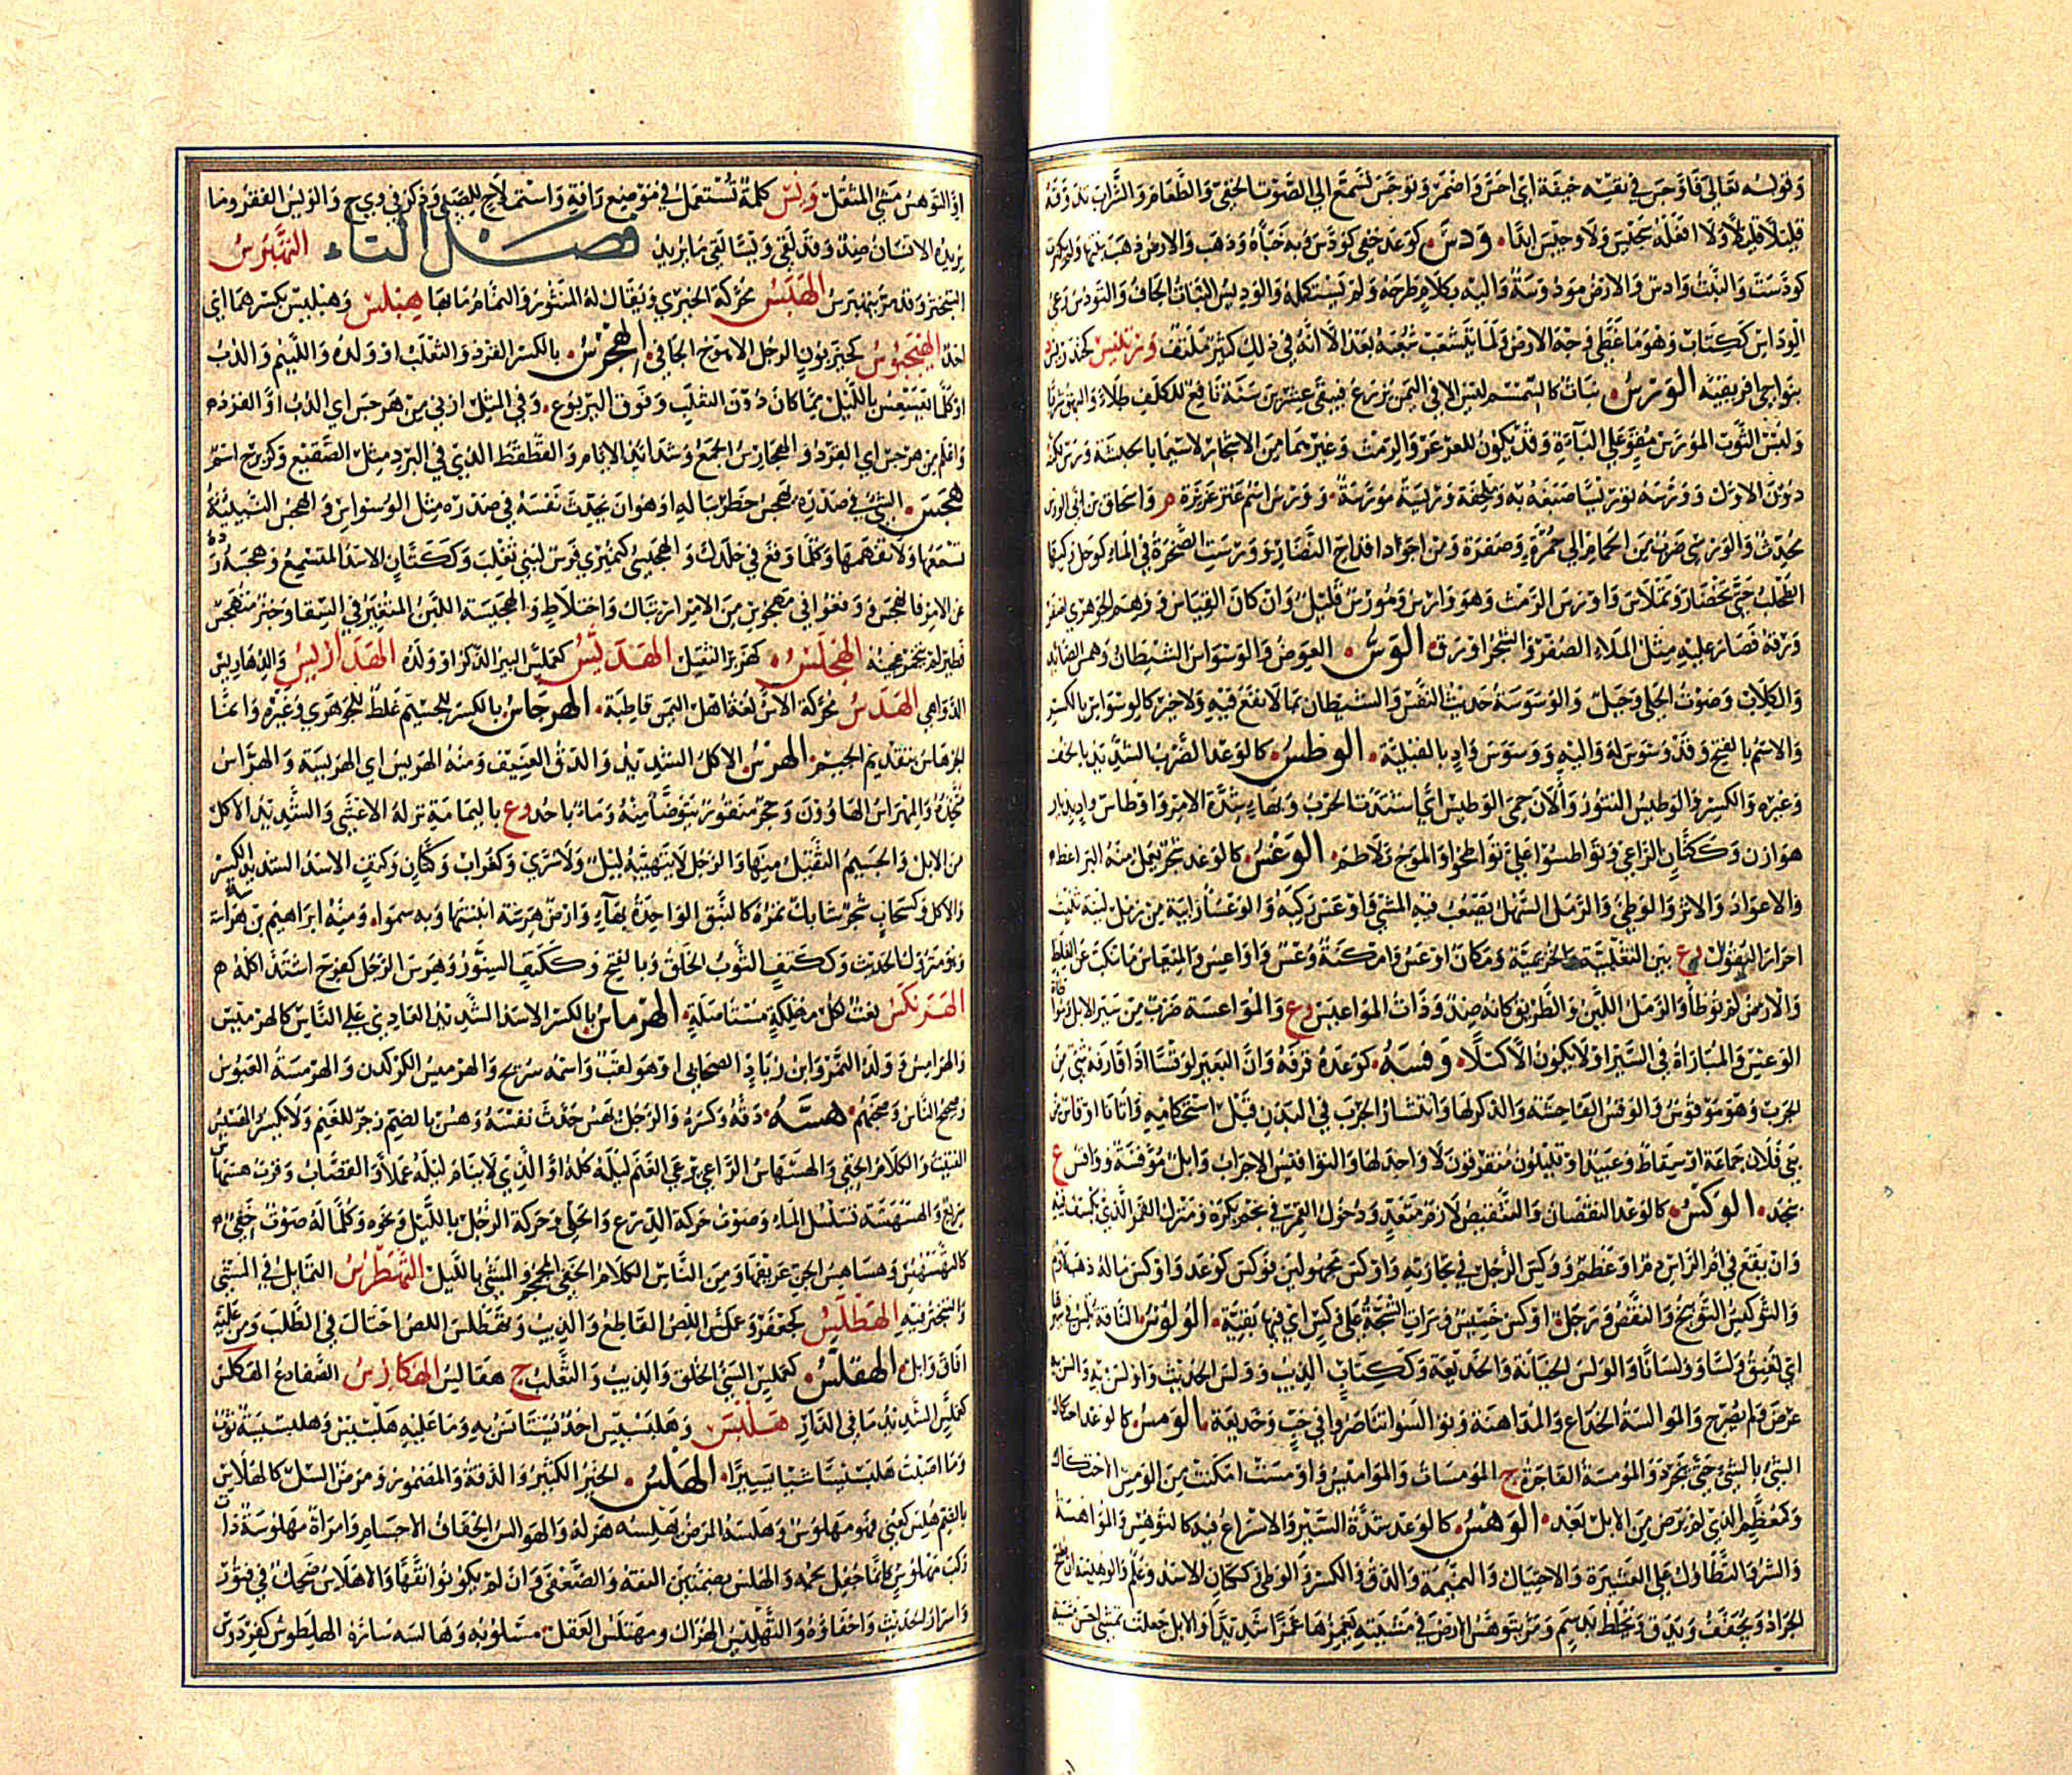 وقوله تعالى فاوجس في نفسه خيفة اي احس واضمر وتوجس تسمع الى الصوت الخفي والطعام والشراب تذوقه
قليلا قليلا ولا افعله سجيس ولا وجيس ابدا ودس كوعد خفي كودس وبه خبأه وذهب والارض ظهر نبتها ولم يكثر
كودست والنبت وادس والارض مودوسة واليه بكلام طرحه ولم يستكمله والوديس النبات الجاف والتودس رعي
الوداس ككتاب وهو ما غطى وجه الارض ولما يتشعب شعبه بعد الا انه في ذلك كثير ملتف ورتنيس
بنواحي افريقية الورس نبات كالسمسم ليس الا في اليمن يزرع فيبقى عشرين سنة نافع للكلف طلاء وللبهق شربا
ولبس الثوب المورس مقو على الباءة وقد يكون للعرعر والرمث وغيرهما من الاشجار لاسيما بالحبشة ورس لكنه
دون الاول وورسه توريسا صبغه به وملحفة ورسية مورسة وورس اسم عنز غزيرة م واسحاق بن ابي الورس
محدث والورسي ضرب من الحمام الى حمرة وصفرة ومن اجود اقداح النضار وورست الصخرة في الماء كوجل ركبها
الطحلب حتى تخضار وتملاس واورس الرمث وهو وارس ومورس قليل وان كان القياس ووهم الجوهري اصفر
ورقه فصار عليه مثل الملاء الصفر والشجر اورق الوس العوض والوسواس الشيطان وهمس الصائد
والكلاب وصوت الحلي وجبل والوسوسة حديث النفس والشيطان بما لا نفع فيه ولا خير كالوسواس بالكسر
والاسم بالفتح وقد وسوس له واليه ووسوس واد بالقبلية الوطس كالوعد الضرب الشديد بالخف
وغيره والكسر والوطيس التنور والان حمي الوطيس اي اشتدت الحرب وبهاء شدة الامر واوطاس واد بديار
هوازن وككتان الراعي وتواطسوا علي تواطحوا والموج تلاطم الوعس كالوعد شجر تعمل منه البرابط
والاعواد والاثر والوطئ والرمل السهل يصعب فيه المشي واوعس ركبه والوعساء رابية من رمل لينة تنبت
احرار البقول وع بين الثعلبية والخزيمية ومكان اوعس وامكنة وعس واواعس والميعاس ما تنكب عن الغلظ
والارض لم توطأ والرمل اللين والطريق كانه ضد وذات المواعيس ع والمواعسة ضرب من سير الابل
الوعيس والمباراة في السير او لا يكون الا ليلا وقسه كوعده قرفه وان بالبعير لوقسا اذا قارفه شئ من
الجرب وهو موقوس والوقس الفاحشة والذكر لها وانتشار الجرب في البدن قبل استحكامه واتانا اوقاس من
بني فلان جماعة او سقاط وعبيد او قليلون متفرقون لا واحد لها والتوقيس الاجراب وابل موقسة وواقس ع
بنجد الوكس كالوعد النقصان والتنقيص لازم متعد ودخول القمر في نجم يكره ومنزل القمر الذي يكسف فيه
وان يقع في ام الراس دم او عظم ووكس الرجل في تجارته واوكس مجهولين توكس كوعد واوكس ماله ذهب لازم
والتوكيس التوبيخ والنقص ورجل اوكس خسيس وبرات الشجة على وكس اي فيها بقية الولوس الناقة تلس في
اي تعنق ولسا وولسانا والولس الخيانة والخديعة وككتاب الذيب وولس الحديث واولس به والس به
عرض ولم يصرح والموالسة الخداع والمداهنة وتوالسوا تناصروا في خب وخديعة الومس كالوعد احتكاك
الشئ بالشئ حتى ينجرد والمومسة الفاجرة ج المومسات والمواميس واومست امكنت من الومس الاحتكاك
وكمعظم الذي لم يرض من الابل بعد الوهس كالوعد شدة السير والاسراع فيه كالتوهس والمواهسة
والشر والتطاول على العشيرة والاختيال والنميمة والدق والكسر والوطئ وككتان الاسد وعلم والوهيسة ان يطبخ
الجراد ويجفف ويدق ويخلط بدسم ومر يتوهس الارض في مشيته يغمزها غمزا شديدا والابل جعلت تمشي احسن مشية
او التوهس مشي المثقل ويس كلمة تستعمل في موضع رافة واستملاح للصبي وذكر في ويح والويس الفقر وما
يريده الانسان ضد وقد لقي ويسا لقي ما يريد فصل الهاء التهبرس
التبختر وقد مر يتهبرس الهبس محركة الخيري ويقال له المنثور والنمام ما بها هبلس وهبلبيس بكسرهما اي
احد الهجبوس كحيزبون الرجل الاهوج الجافي الهجرس بالكسر القرد والثعلب او ولده واللئيم والدب
او كل ما يعسعس بالليل مما كان دون الثعلب وفوق اليربوع وفي المثل ازنى من هجرس اي الدب او القرد
واغلم من هجرس اي القرد والهجارس الجمع وشدائد الايام والقطقط الذي في البرد مثل الصقيع وكزبرج اسم
هجس الشئ في صدره يهجس خطر بباله او هو ان يحدث نفسه في صدره مثل الوسواس والهجس النبأة
تسمعها ولا تفهمها وكلما وقع في خلدك والهجيسي كنميري فرس لبني تغلب وككتان الاسد المتسمع وهجسه رده
عن الامر فانهجس ووقعوا في مهجوس من الامر ارتباك واختلاط والهجيسة اللبن المتغير في السقا وخبز متهجس
فطير لم يختمر عجينه الهجلس كهزبر الثقيل الهدبس كعملس الببر الذكر او ولده الهداريس والدهاريس
الدواهي الهدس محركة الآس لغة اهل اليمن قاطبة الهرجاس بالكسر للجسيم غلط للجوهري وغيره وانما
الجرهاس بتقديم الجيم الهرس الاكل الشديد والدق العنيف ومنه الهريس اي الهريسة والهراس
متخذه والمهراس الهاوون وحجر منقور يتوضأ منه وماء باحد وع باليمامة نزله الاعشى والشديد الاكل
من الابل والجسيم الثقيل منها والرجل لا يتهيبه ليل ولا سرى وكغراب وكتان وكتف الاسد الشديد الكسر
والاكل وكسحاب شجر شائك ثمره كالنبق الواحدة بهاء وارض هرسة انبتتها وبه سموا ومنه ابراهيم بن هراسة
وهو متروك الحديث وككتف الثوب الخلق وبالفتح وككتف السنور وهرس الرجل كفرح اشتد اكله م
الهرنكس نعت لكل مهلكة مستأصلة الهرماس بالكسر الاسد الشديد العادي على الناس كالهرميس
والهرامس وولد النمر وابن زياد الصحابي او هو لقب واسمه سريج والهرميس الكركدن والهرمسة العبوس
وضجيج الناس وضجتهم هسه دقه وكسره والرجل يهس حدث نفسه وهس بالضم زجر للغنم ولا يكسر والهسيس
الفتيت والكلام الخفي والهسهاس الراعي يرعى الغنم ليله كله او الذي لا ينام ليله عملا والقصاب وقرب هسهاس
سريع والهسهسة تسلسل الماء وصوت حركة الدرع والحلي وحركة الرجل بالليل ونحوه وكل ما له صوت خفي
كالتهسهس وهساهس الجن عزيفها ومن الناس الكلام الخفي المجمجم والمشي بالليل التهطرس التمايل في المشي
والتبختر فيه الهطلس كجعفر وعملس اللص القاطع والذيب وتهطلس اللص احتال في الطلب ومن علته
افاق وابل الهقلس كعملس السيئ الخلق والذيب والثعلب ج هقالس الهكارس الضفادع الهكلس
كعملس الشديد ما في الدار هلبس وهلبسيس احد يستأنس به وما عليه هلبسيس وهلبسيسة ثوب
وما اصبت هلبسيسا شيا يسيرا الهلس الخير الكثير والدقة والضمور ومرض السل كالهلاس
بالضم هلس كعني فهو مهلوس وهلسه المرض يهلسه هزله والهوالس الخفاف الاجسام وامراة مهلوسة ذات
ركب مهلوس كانما جفل لحمه والهلس بضمتين النقه والضعفى وان لم يكونوا نقها والاهلاس ضحك في فتور
واسرار الحديث واخفاؤه والتهليس الهزال ومهتلس العقل مسلوبه وهالسه ساره الهلطوس كفردوس